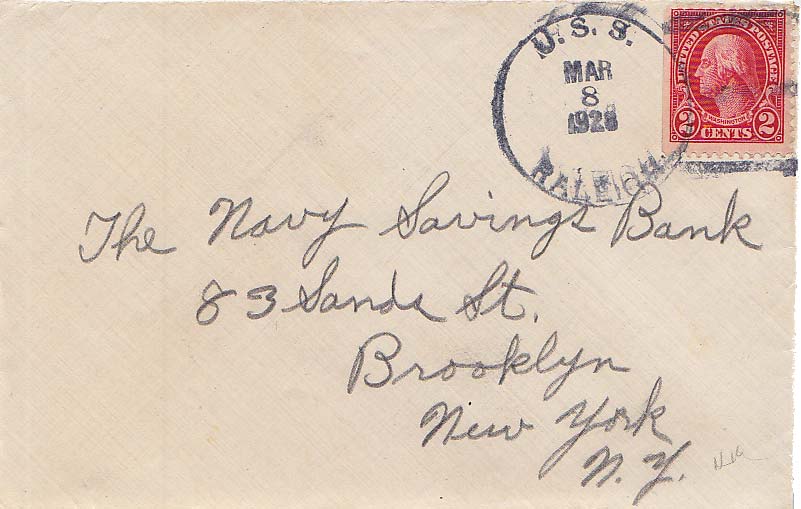 U.S.S.
MAR
8
1928
RALEIGH
UNITED STATES POSTAGE
WASHINGTON
2 CENTS 2
The Navy Savings Bank
83 Sands St.
Brooklyn
New York
N.Y.